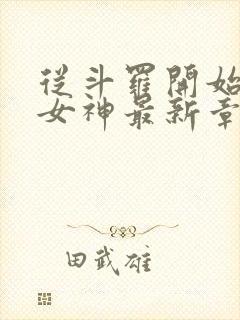 從斗羅開始
女神最新章
田武雄